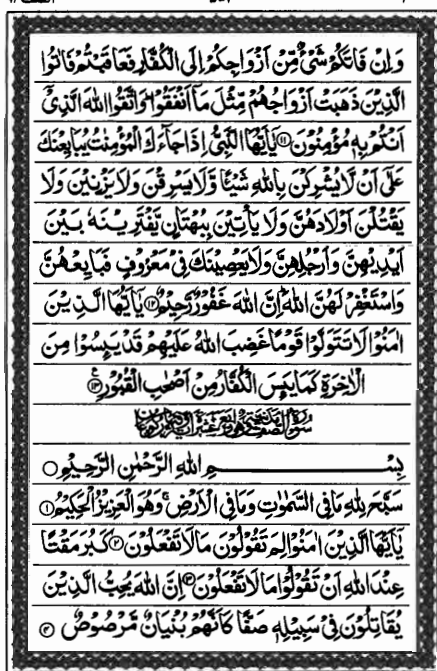 وَاِنْ فَاتَكُمْ شَیْءٌ مِّنْ اَزْوَاجِكُمْ اِلَی الْكُفَّارِ فَعَاقَبْتُمْ فَاٰتُوا
الَّذِیْنَ ذَهَبَتْ اَزْوَاجُهُمْ مِّثْلَ مَاۤ اَنْفَقُوْا ؕ وَاتَّقُوا اللّٰهَ الَّذِیْۤ
اَنْتُمْ بِهٖ مُؤْمِنُوْنَ ﴿۱۱﴾ یٰۤاَیُّهَا النَّبِیُّ اِذَا جَآءَكَ الْمُؤْمِنٰتُ یُبَایِعْنَكَ
عَلٰۤی اَنْ لَّا یُشْرِكْنَ بِاللّٰهِ شَیْـًٔا وَّلَا یَسْرِقْنَ وَلَا یَزْنِیْنَ وَلَا
یَقْتُلْنَ اَوْلَادَهُنَّ وَلَا یَاْتِیْنَ بِبُهْتَانٍ یَّفْتَرِیْنَهٗ بَیْنَ
اَیْدِیْهِنَّ وَاَرْجُلِهِنَّ وَلَا یَعْصِیْنَكَ فِیْ مَعْرُوْفٍ فَبَایِعْهُنَّ
وَاسْتَغْفِرْ لَهُنَّ اللّٰهَ ؕ اِنَّ اللّٰهَ غَفُوْرٌ رَّحِیْمٌ ﴿۱۲﴾ یٰۤاَیُّهَا الَّذِیْنَ
اٰمَنُوْا لَا تَتَوَلَّوْا قَوْمًا غَضِبَ اللّٰهُ عَلَیْهِمْ قَدْ یَىِٕسُوْا مِنَ
الْاٰخِرَةِ كَمَا یَىِٕسَ الْكُفَّارُ مِنْ اَصْحٰبِ الْقُبُوْرِ ﴿۱۳﴾
بِسْمِ اللّٰهِ الرَّحْمٰنِ الرَّحِیْمِ
سَبَّحَ لِلّٰهِ مَا فِی السَّمٰوٰتِ وَمَا فِی الْاَرْضِ ۚ وَهُوَ الْعَزِیْزُ الْحَكِیْمُ ﴿۱﴾
یٰۤاَیُّهَا الَّذِیْنَ اٰمَنُوْا لِمَ تَقُوْلُوْنَ مَا لَا تَفْعَلُوْنَ ﴿۲﴾ كَبُرَ مَقْتًا
عِنْدَ اللّٰهِ اَنْ تَقُوْلُوْا مَا لَا تَفْعَلُوْنَ ﴿۳﴾ اِنَّ اللّٰهَ یُحِبُّ الَّذِیْنَ
یُقَاتِلُوْنَ فِیْ سَبِیْلِهٖ صَفًّا كَاَنَّهُمْ بُنْیَانٌ مَّرْصُوْصٌ ﴿۴﴾